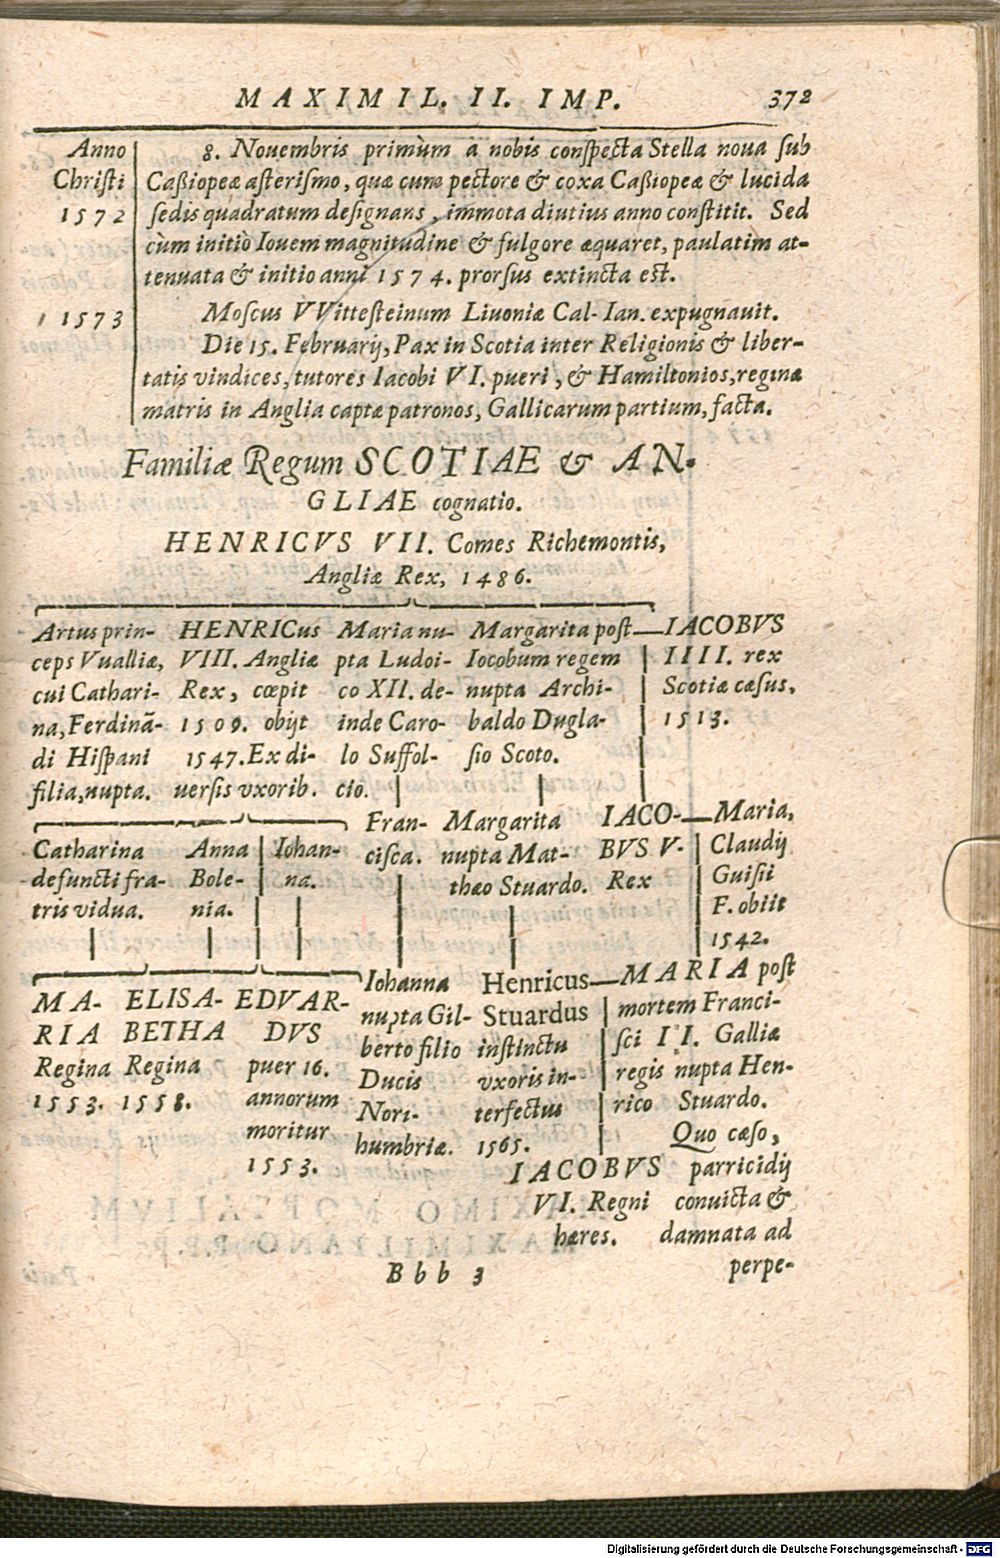 MAXIMIL. II. IMP. 372
Anno 8. Nouembris primùm à nobis conſpecta Stella noua ſub
Chriſti Caßiopeæ aſteriſmo, quæ cum pectore & coxa Caßiopeæ & lucida
1572 ſedis quadratum deſignans, immota diutius anno conſtitit. Sed
cùm initiò Iouem magnitudine & fulgore æquaret, paulatim at-
tenuata & initio anni 1574. prorſus extincta eſt.
1573 Moſcus VVitteſteinum Liuoniæ Cal. Ian. expugnauit.
Die 15. Februarij, Pax in Scotia inter Religionis & liber-
tatis vindices, tutores Iacobi VI. pueri, & Hamiltonios, reginæ
matris in Anglia captæ patronos, Gallicarum partium, facta.
Familiæ Regum SCOTIAE & AN-
GLIAE cognatio.
HENRICVS VII. Comes Richemontis,
Angliæ Rex, 1486.
Artus prin-
ceps Vualliæ,
cui Cathari-
na, Ferdinā-
di Hiſpani
filia, nupta.
HENRICus
VIII. Angliæ
Rex, cœpit
1509. obijt
1547. Ex di-
uerſis vxorib.
Maria nu-
pta Ludoi-
co XII. de-
inde Caro-
lo Suffol-
cio.
Margarita poſt
Iocobum regem
nupta Archi-
baldo Dugla-
ſio Scoto.
IACOBVS
IIII. rex
Scotiæ cæſus,
1513.
Catharina
defuncti fra-
tris vidua.
Anna
Bole-
nia.
Iohan-
na.
Fran-
ciſca.
Margarita
nupta Mat-
thæo Stuardo.
IACO-
BVS V.
Rex
Maria,
Claudij
Guiſii
F. obiit
1542.
MA-
RIA
Regina
1553.
ELISA-
BETHA
Regina
1558.
EDVAR-
DVS
puer 16.
annorum
moritur
1553.
Iohanna
nupta Gil-
berto filio
Ducis
Nori-
humbriæ.
Henricus
Stuardus
inſtinctu
vxoris in-
terfectus
1565.
MARIA poſt
mortem Franci-
ſci II. Galliæ
regis nupta Hen-
rico Stuardo.
Quo cæſo,
IACOBVS parricidij
VI. Regni conuicta &
hæres. damnata ad
Bbb 3 perpe-
Digitalisierung gefördert durch die Deutsche Forschungsgemeinschaft - DFG